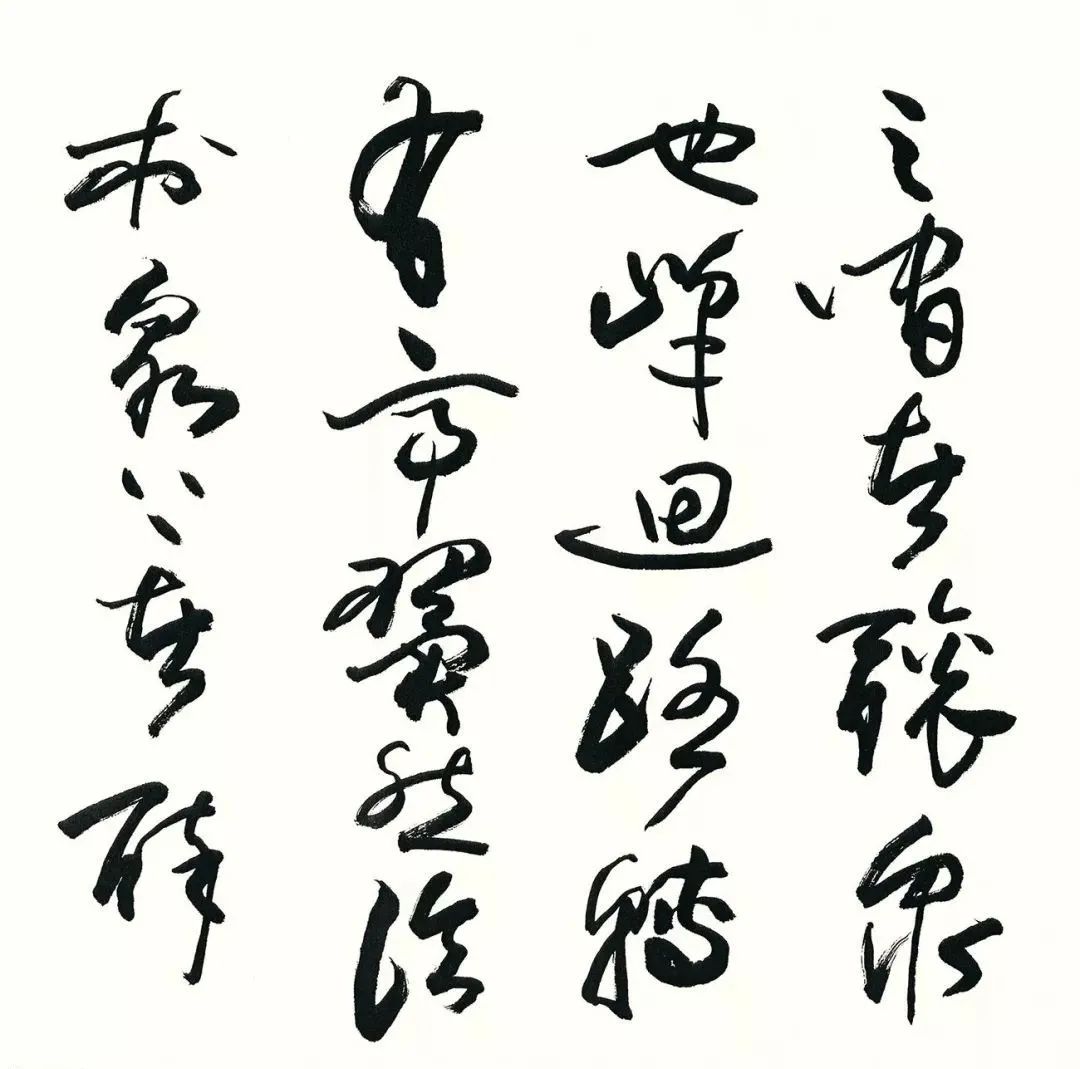 之間者釀泉
也峰迴路轉
有亭翼然臨
於泉上者醉